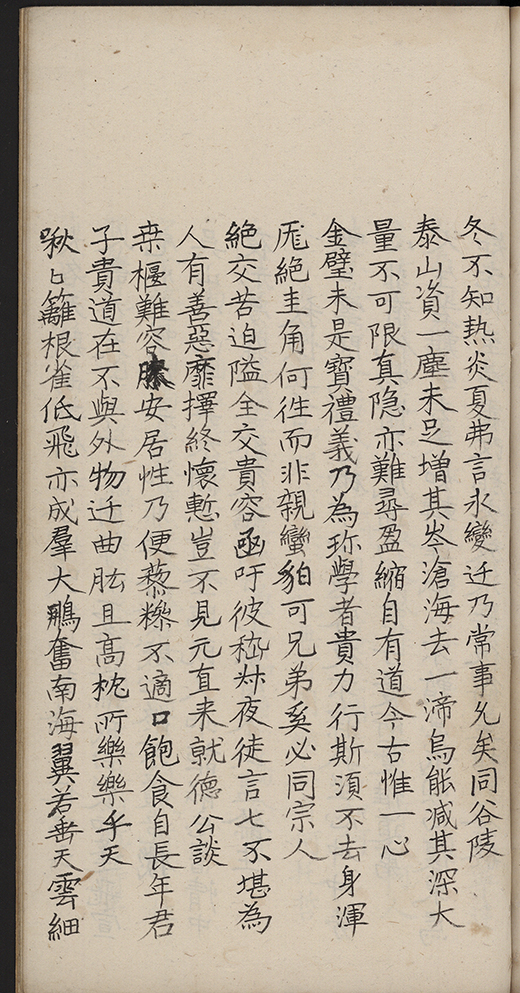 冬不知热炎夏弗言氷變迁乃常事允矣同谷陵
泰山資一塵未足增其岑滄海去一渧烏能减其深大
量不可限真隐亦難尋盈縮自有道今古惟一心
金璧未是寳禮義乃為珎學者貴力行斯湏不去身渾
厖絶圭角何徃而非親蠻貊可兄弟奚必同宗人
絶交苦迫隘全交貴容凾吁彼嵇叔夜徒言七不堪為
人有善惡靡擇終懷慙豈不見元直来就德公談
桒樞難容膝安居性乃便藜糝不適口飽食自長年君
子貴道在不與外物迁曲肱且高枕所樂樂乎天
啾〻籬根雀低飛亦成羣大鵬奮南海翼若垂天雲細